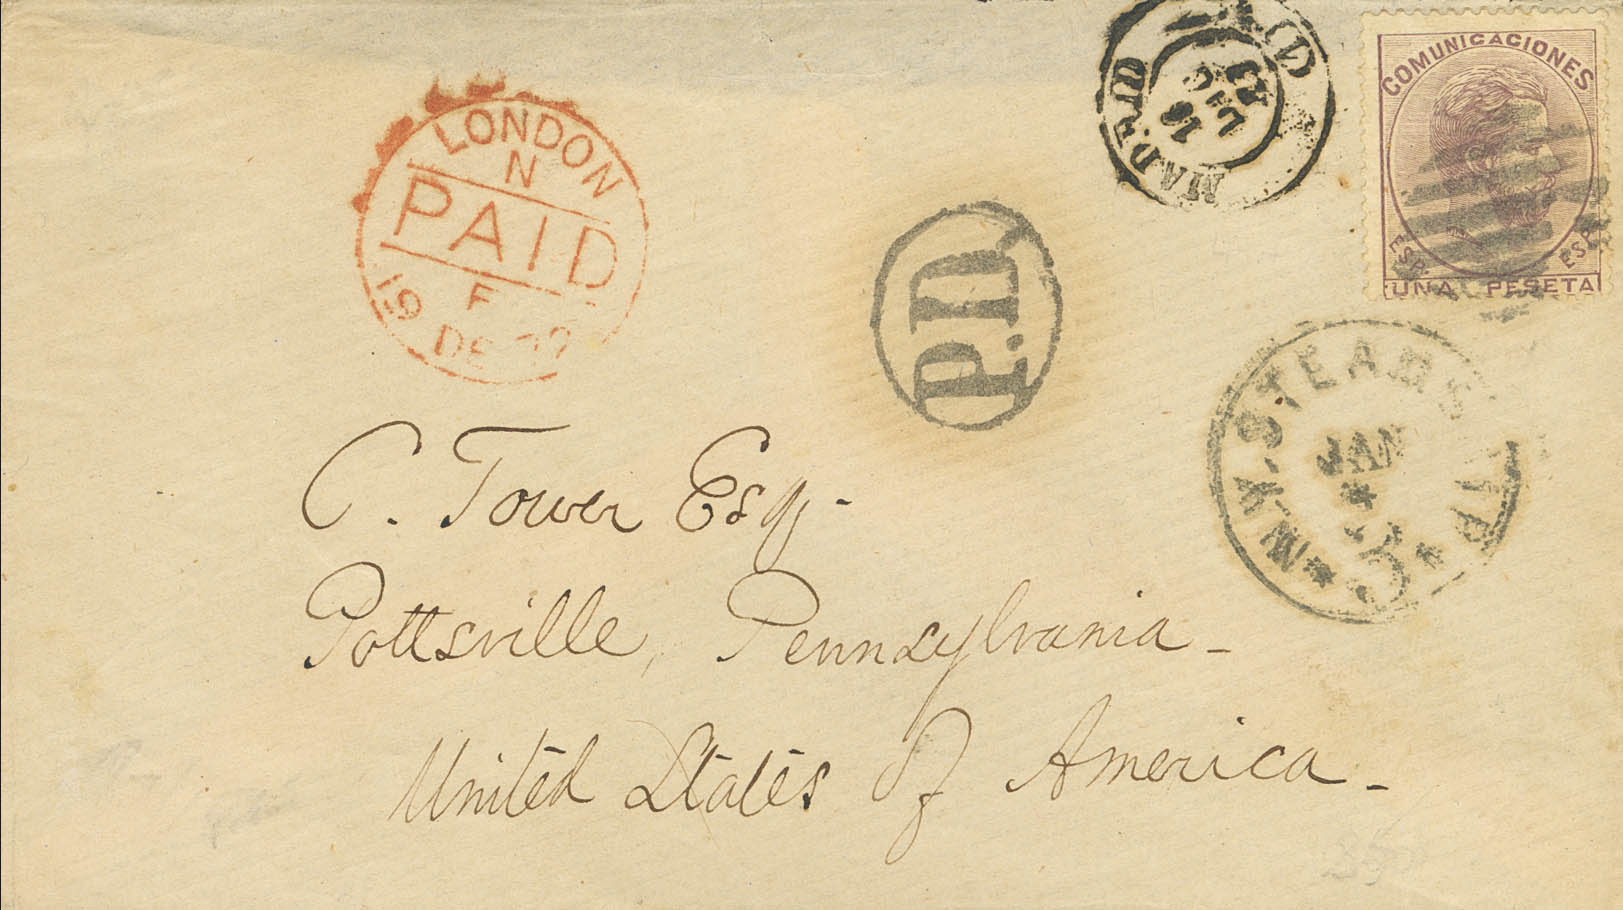 LONDON
N
PAID
F
19
MADRID
16
COMUNICACIONES
ESP.
ESP.
UNA PESETA
P.D.
N.Y. STEAMSHIP
JAN
C. Tower Esq.-
Pottsville, Pennsylvania -
United States of America -